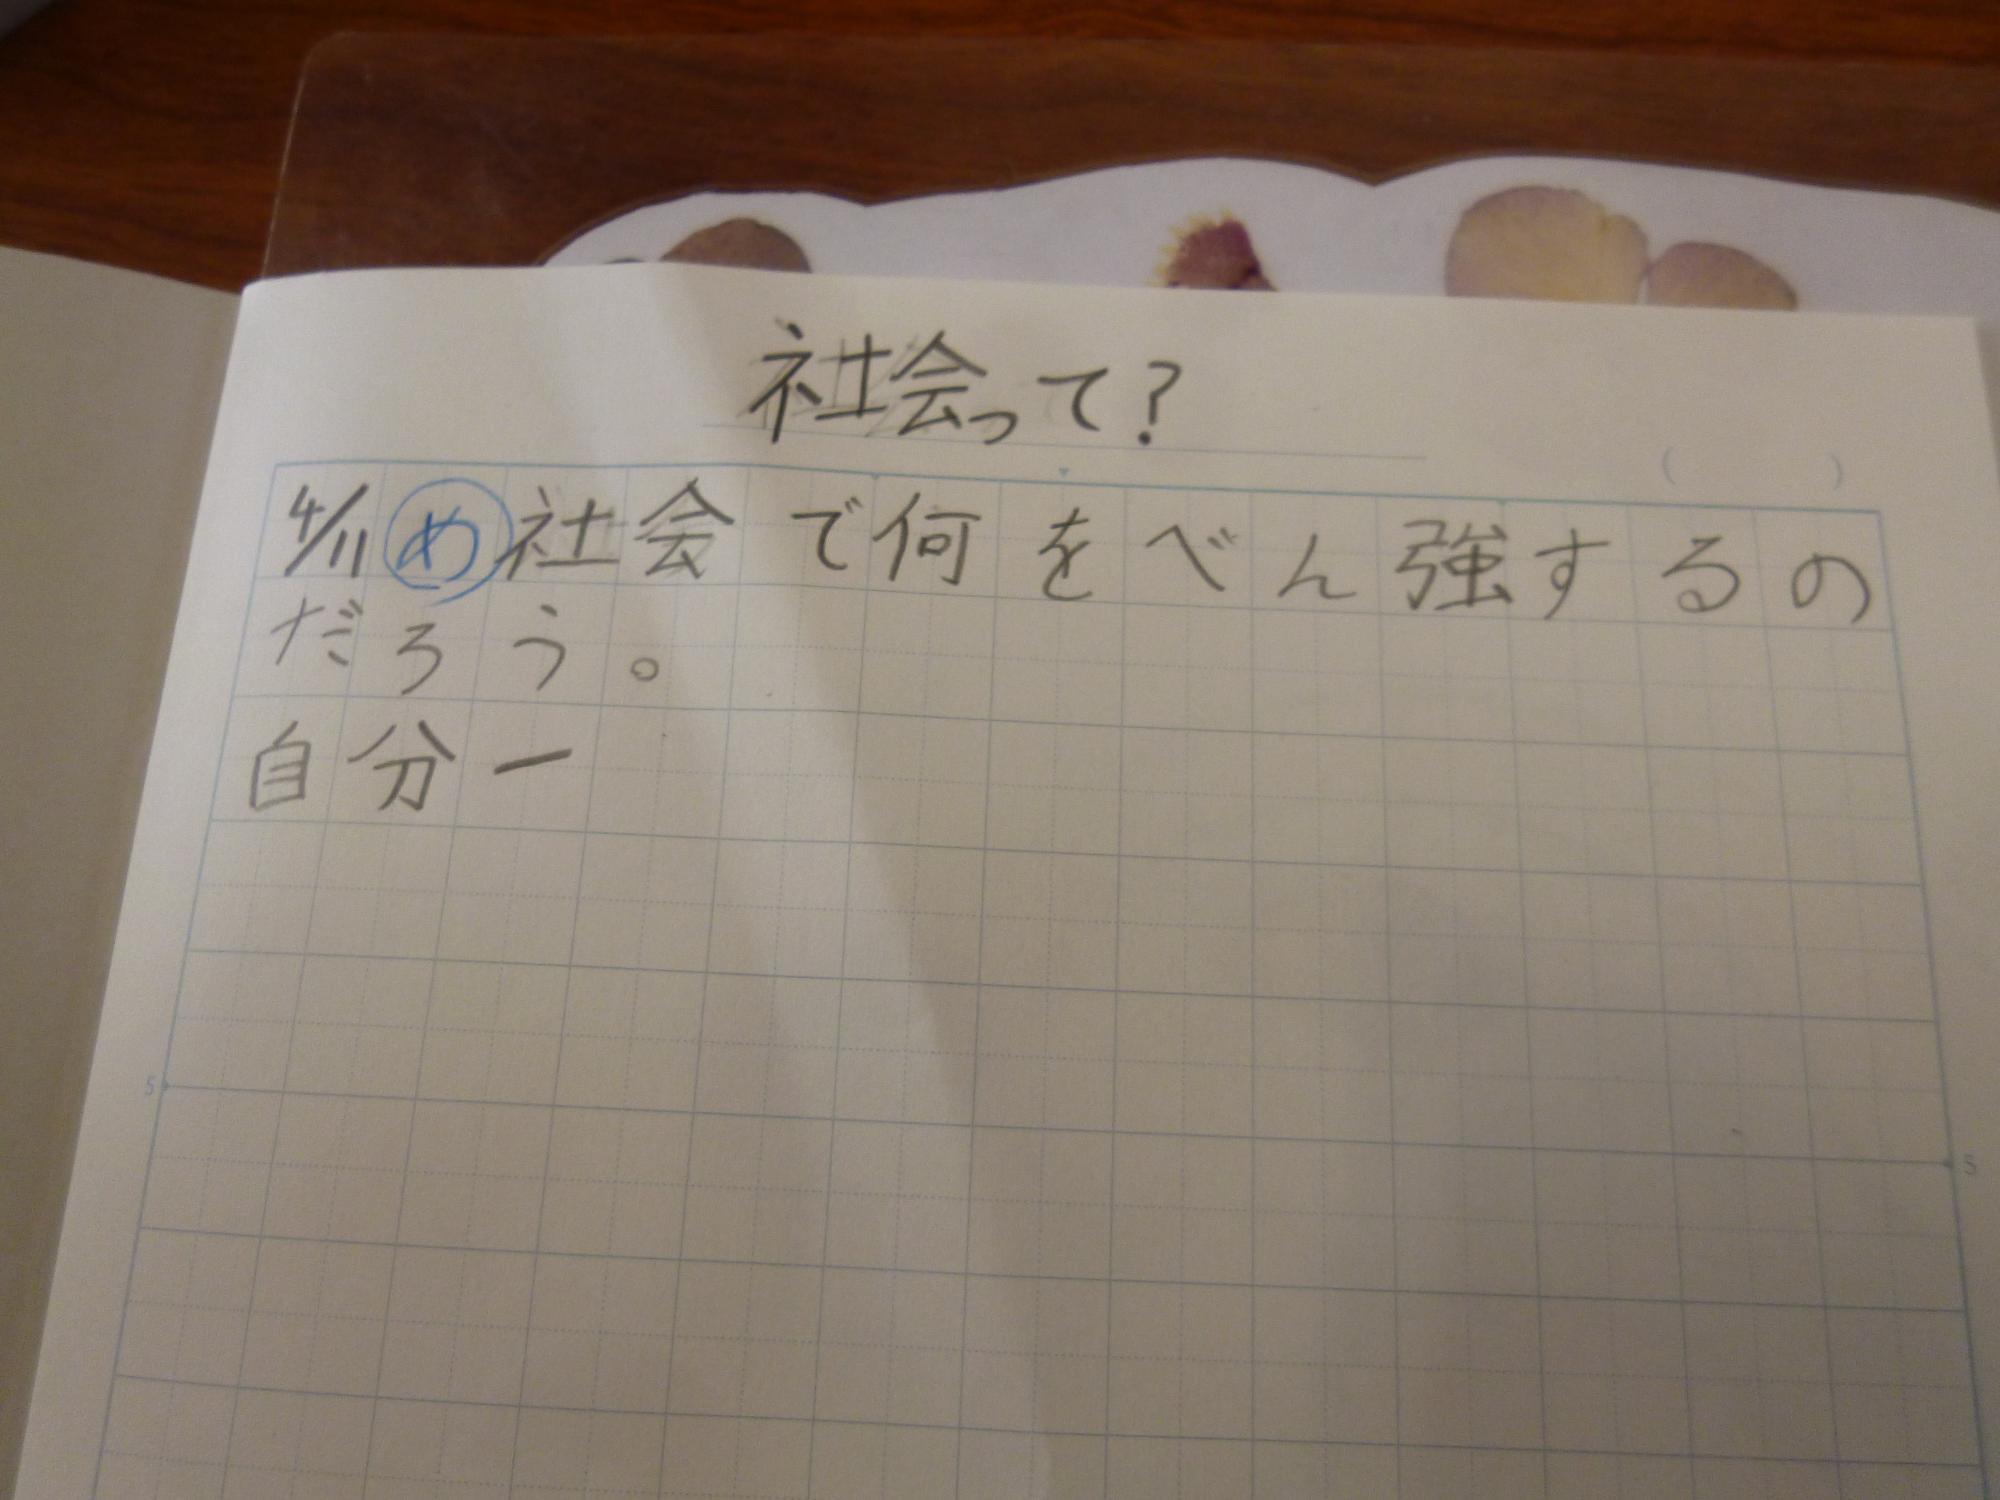 社会って?
4/11 め 社会で何をべん強するの
だろう。
自分ー
5 5